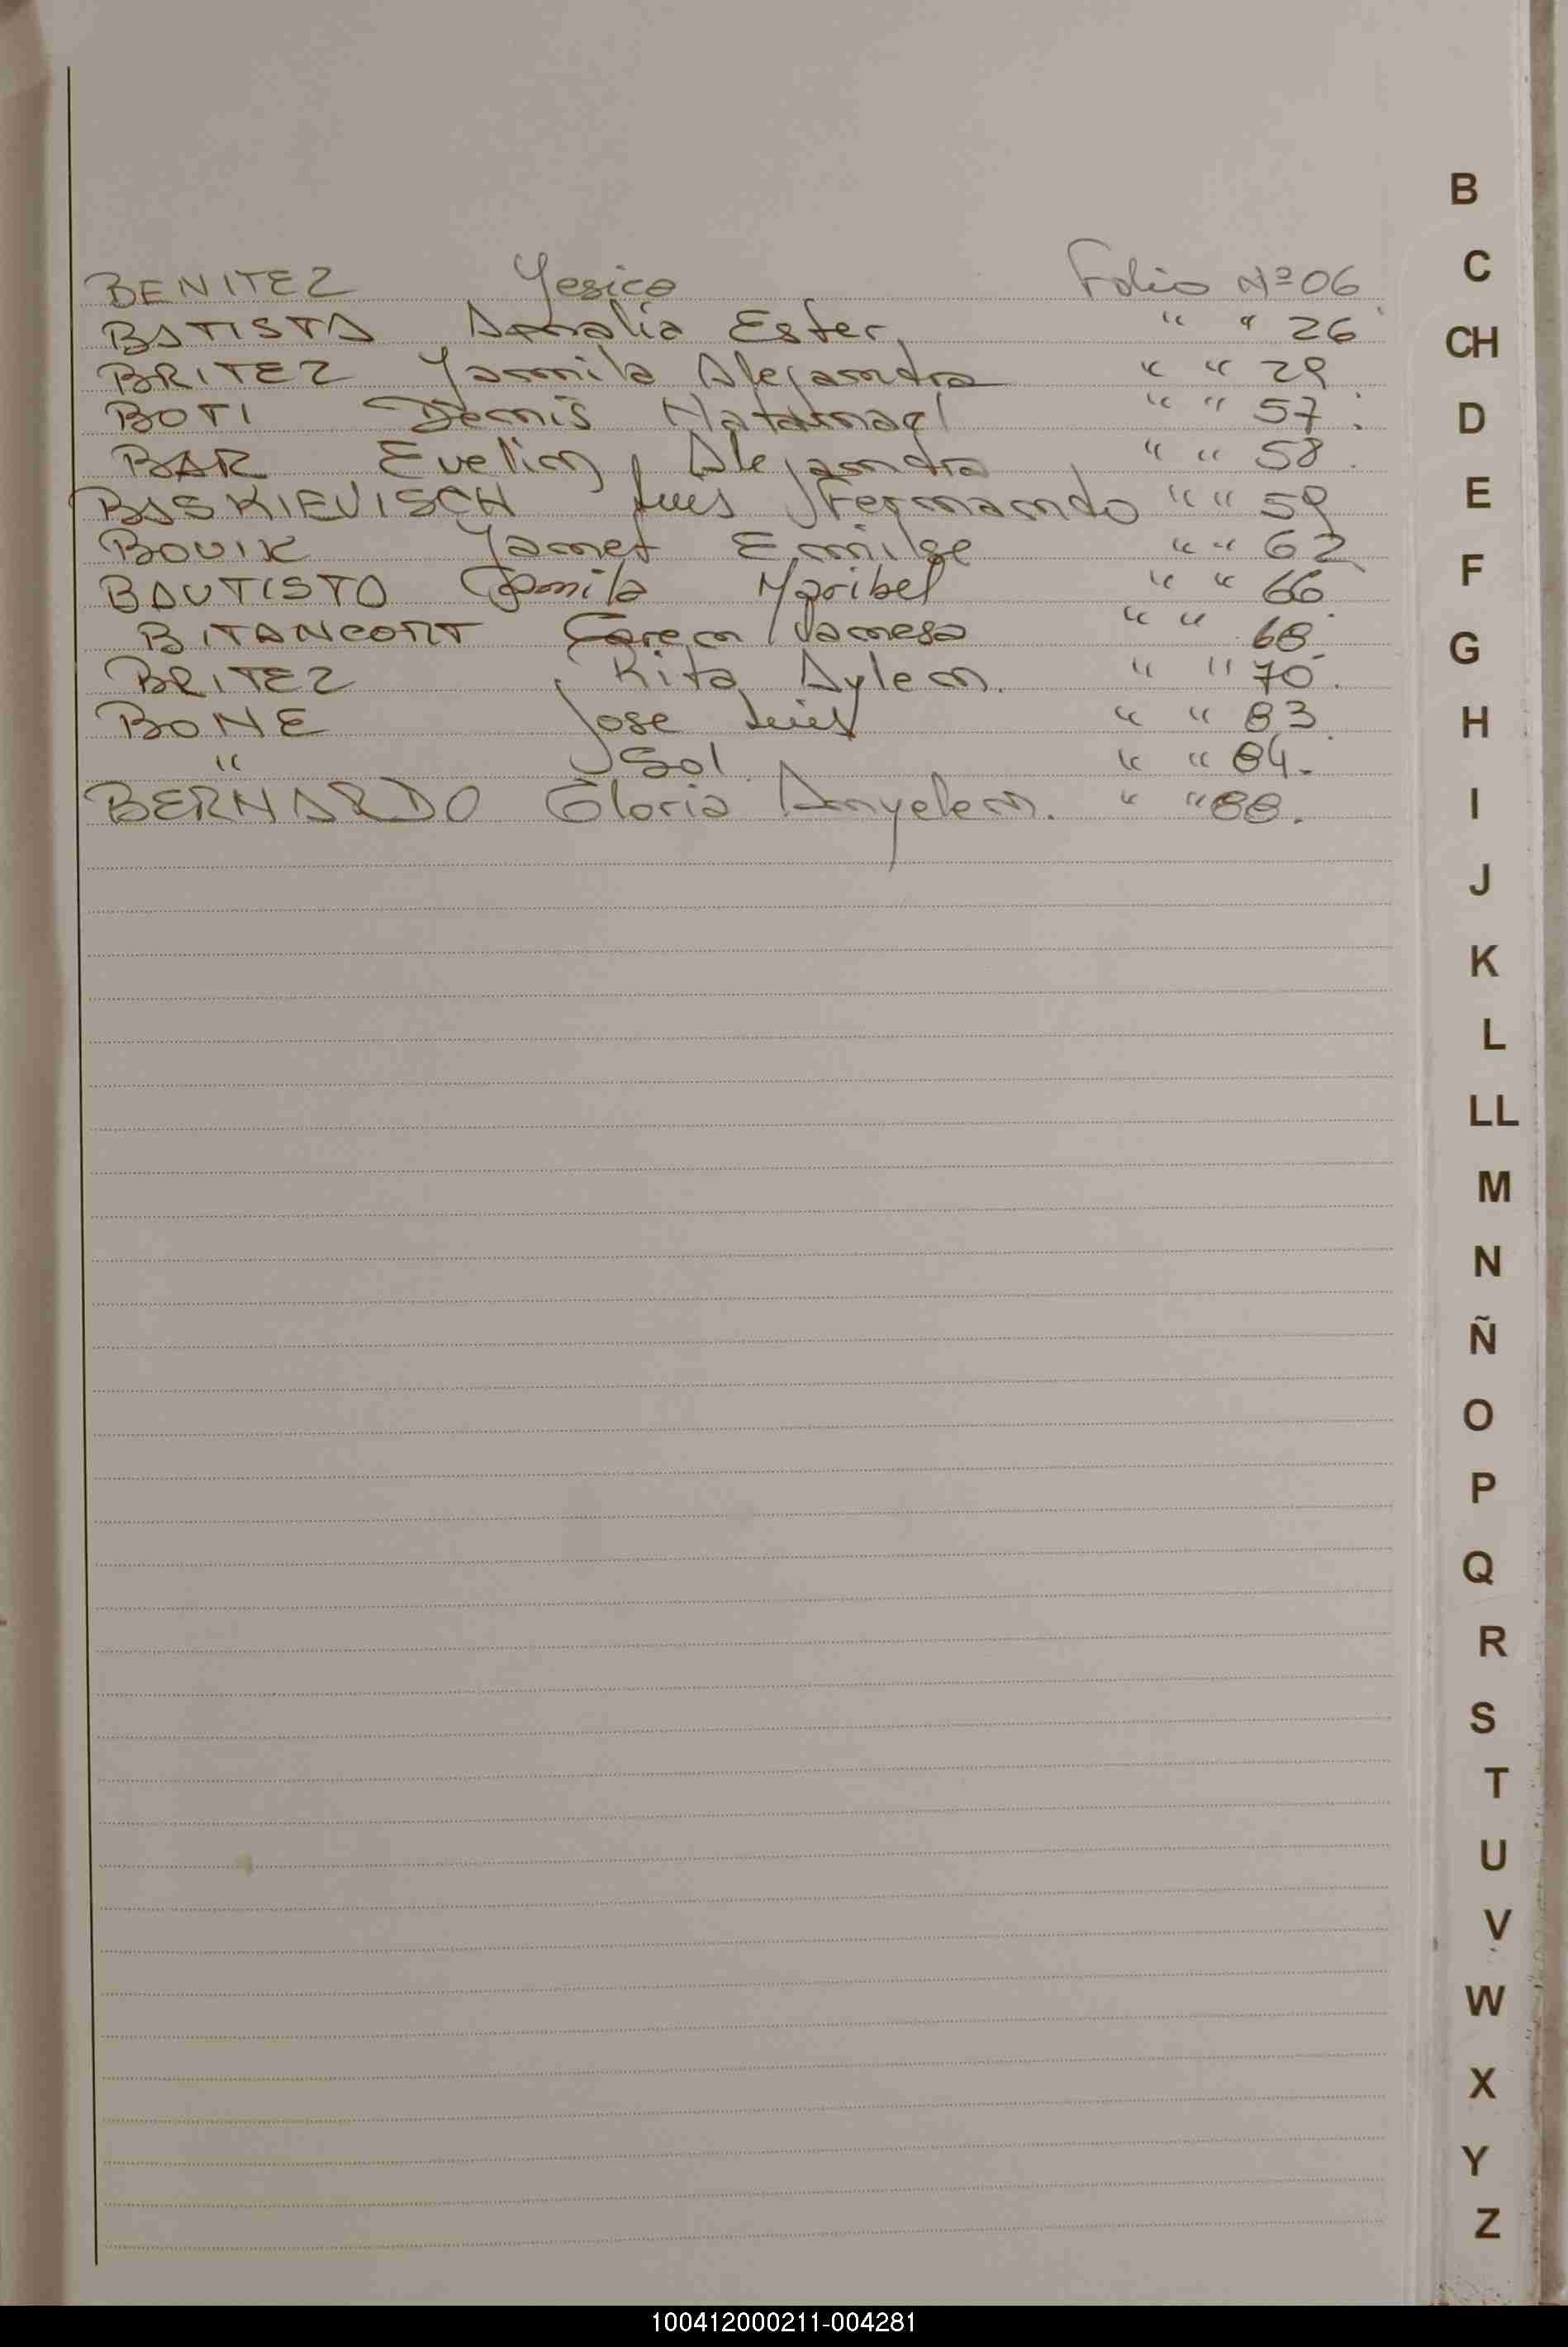 BENITEZ Yesica Folio Nº 06
BATISTA Amalia Ester " " 26
BRITEZ Yamila Alejandra " " 29
BOTI Denis Natanael " " 57
BAR Evelin Alejandra " " 58
BASKIEVISCH Luis Fernando " " 59
BOVIK Yanet Emilse " " 62
BAUTISTO Camila Maribel " " 66
BITANCORT Caren Vanesa " " 68
BRITEZ Rita Aylen. " " 70.
BONE Jose Luis " " 83
" Sol " " 84.
BERNARDO Gloria Anyelen. " " 88.
B
C
CH
D
E
F
G
H
I
J
K
L
LL
M
N
Ñ
O
P
Q
R
S
T
U
V
W
X
Y
Z
100412000211-004281